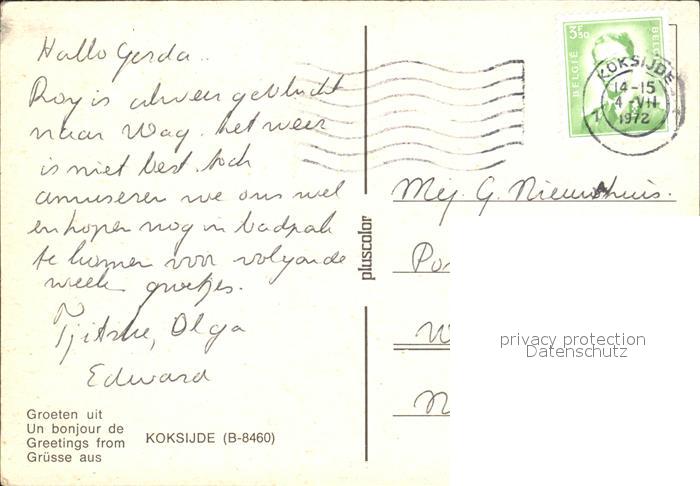 Hallo Gerda..
Roy is alweer gevlucht
naar Wag. het weer
is niet best. toch
amuseren we ons wel
en hopen nog in badpak
te komen voor volgende
week groetjes.
Tjitske, Olga
Edward
Groeten uit
Un bonjour de
Greetings from
Grüsse aus
KOKSIJDE (B-8460)
pluscolor
3F50
BELGIE
BELGIQUE
KOKSIJDE
14-15
4-VII
1972
Mej. G. Nieuwhuis.
W
N
privacy protection
Datenschutz